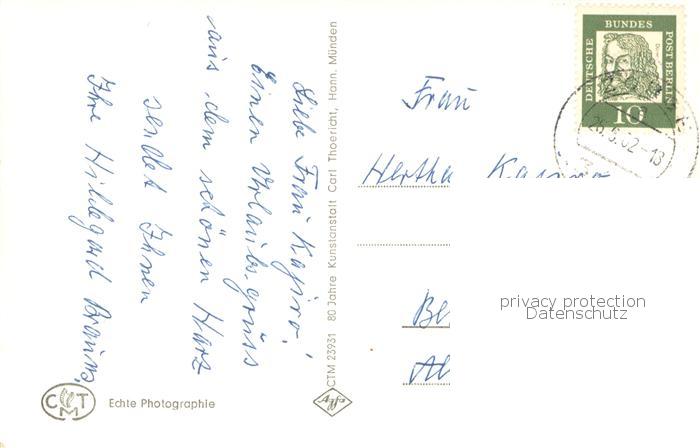 Liebe Frau Kajiro!
Einen Urlaubsgruss
aus dem schönen Harz
sendet Ihnen
Ihre Hildegard Brauns.
CTM 23931 80 Jahre Kunstanstalt Carl Thoericht, Hann. Münden
Agfa
CMT
Echte Photographie
DEUTSCHE
BUNDES
POST BERLIN
10
26.5.62-18
Frau
Hertha
Be
Al
privacy protection
Datenschutz